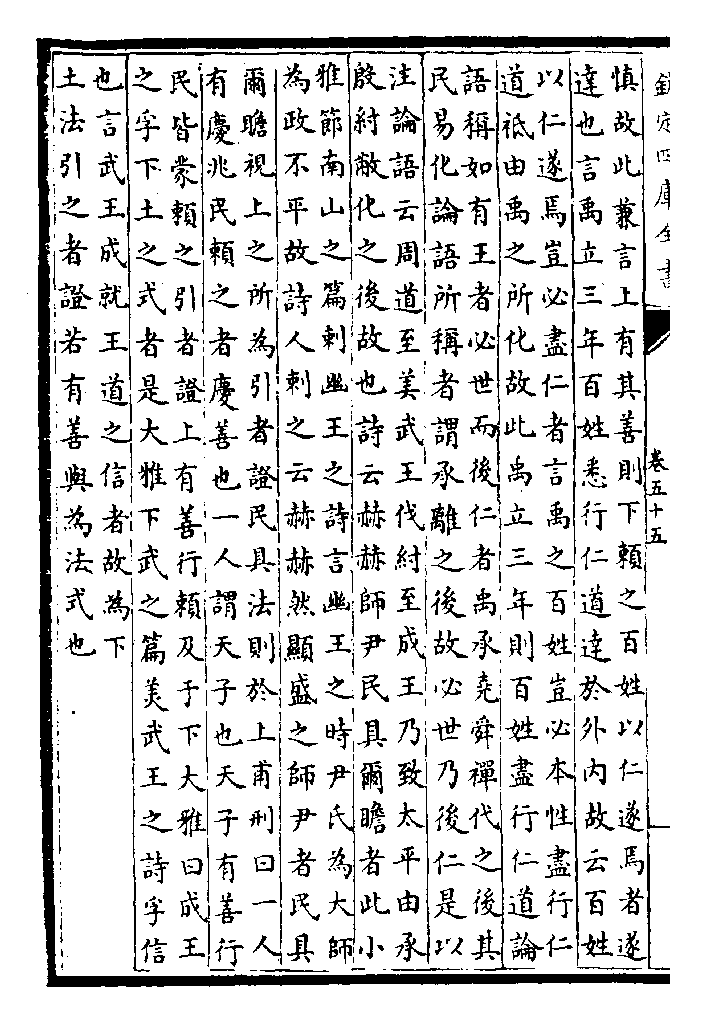 欽定四庫全書
卷五十五
慎故此兼言上有其善則下賴之百姓以仁遂焉者遂
達也言禹立三年百姓悉行仁道達於外内故云百姓
以仁遂焉豈必盡仁者言禹之百姓豈必本性盡行仁
道祗由禹之所化故此禹立三年則百姓盡行仁道論
語稱如有王者必世而後仁者禹承堯舜禪代之後其
民易化論語所稱者謂承離之後故必世乃後仁是以
注論語云周道至美武王伐紂至成王乃致太平由承
殷紂敝化之後故也詩云赫赫師尹民具爾瞻者此小
雅節南山之篇刺幽王之詩言幽王之時尹氏為大師
為政不平故詩人刺之云赫赫然顯盛之師尹者民具
爾瞻視上之所為引者證民具法則於上甫刑曰一人
有慶兆民賴之者慶善也一人謂天子也天子有善行
民皆蒙賴之引者證上有善行賴及于下大雅曰成王
之孚下土之式者是大雅下武之篇美武王之詩孚信
也言武王成就王道之信者故為下
土法引之者證若有善與為法式也